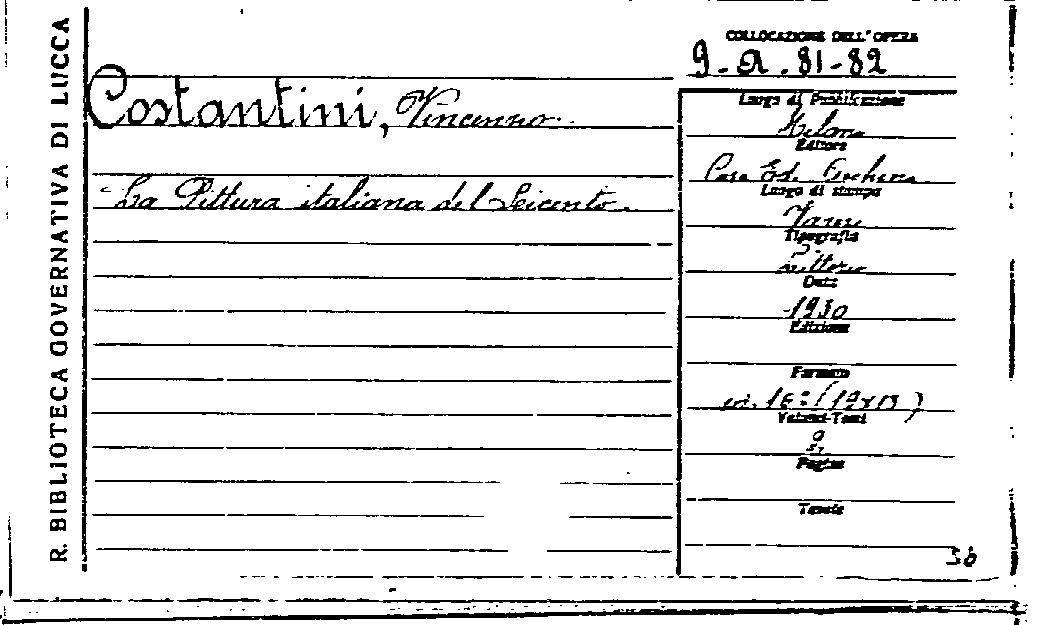 R. BIBLIOTECA GOVERNATIVA DI LUCCA
COLLOCAZIONE DELL' OPERA
9. A. 81-82
Costantini, Vincenzo.
La Pittura italiana del Seicento.
Luogo di Pubblicazione
Milano
Editore
Casa Ed. Ceschina
Luogo di stampa
Tipografia
Data
1930
Edizione
Formato
in. 16º (19x13)
Volumi-Tomi
2
Pagine
Tavole